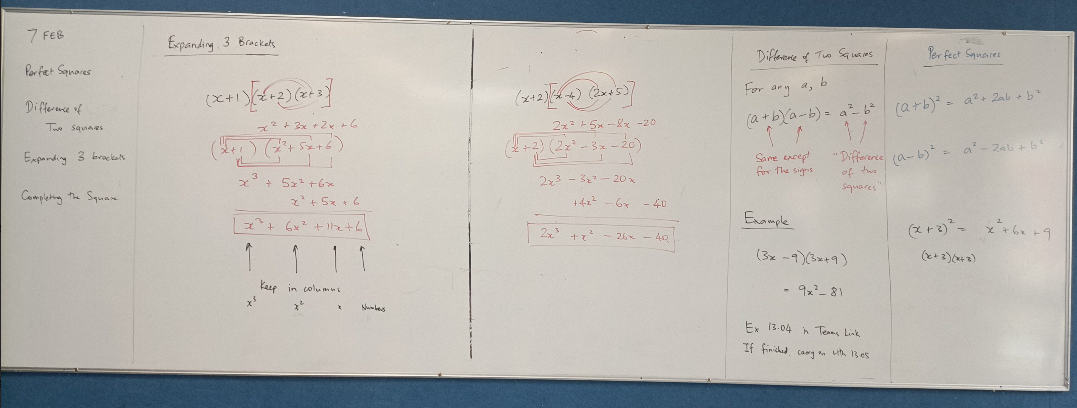 7 FEB
Perfect Squares
Difference of
Two squares
Expanding 3 brackets
Completing the Square
Expanding 3 Brackets
(x+1)[(x+2)(x+3)]
x² + 3x + 2x + 6
(x+1) (x² + 5x + 6)
x³ + 5x² + 6x
x² + 5x + 6
x³ + 6x² + 11x + 6
Keep in columns
x³ x² x Numbers
(x+2)[(x-4)(2x+5)]
2x² + 5x - 8x - 20
(x+2)(2x² - 3x - 20)
2x³ - 3x² - 20x
+4x² - 6x - 40
2x³ + x² - 26x - 40
Difference of Two Squares
For any a, b
(a+b)(a-b) = a² - b²
Same except
for the signs
"Difference
of two
squares"
Example
(3x - 9)(3x+9)
= 9x² - 81
Ex 13.04 in Teams Link
If finished, carry on with 13.05
Perfect Squares
(a+b)² = a² + 2ab + b²
(a-b)² = a² - 2ab + b²
(x+3)² = x² + 6x + 9
(x+3)(x+3)